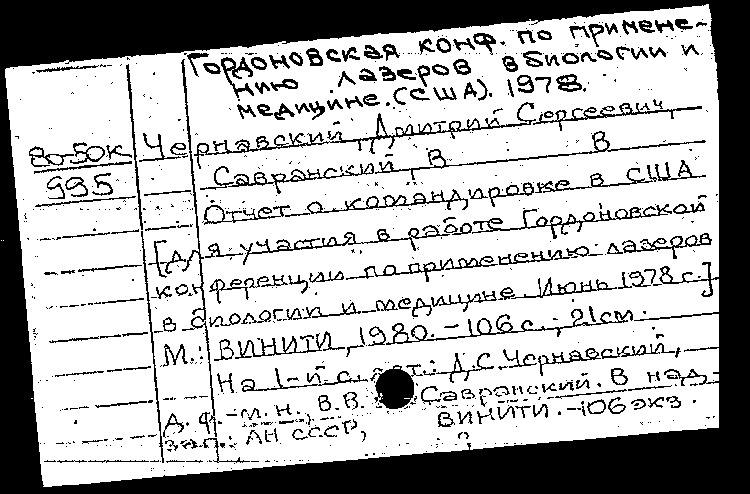 Гордоновская конф. по примене-
нию лазеров в биологии и
медицине. (США). 1978.
80-50к Чернавский, Дмитрий Сергеевич,
995 Савранский, В В
Отчет о командировке в США
[для участия в работе Гордоновской
конференции по применению лазеров
в биологии и медицине. Июнь 1978 г.]
М.: ВИНИТИ, 1980. - 106 с.; 21 см.
На 1-й с. авт.: Д.С. Чернавский,
д. ф.-м. н., В.В. Савранский. В над-
заг.: АН СССР, ВИНИТИ. - 106 экз.